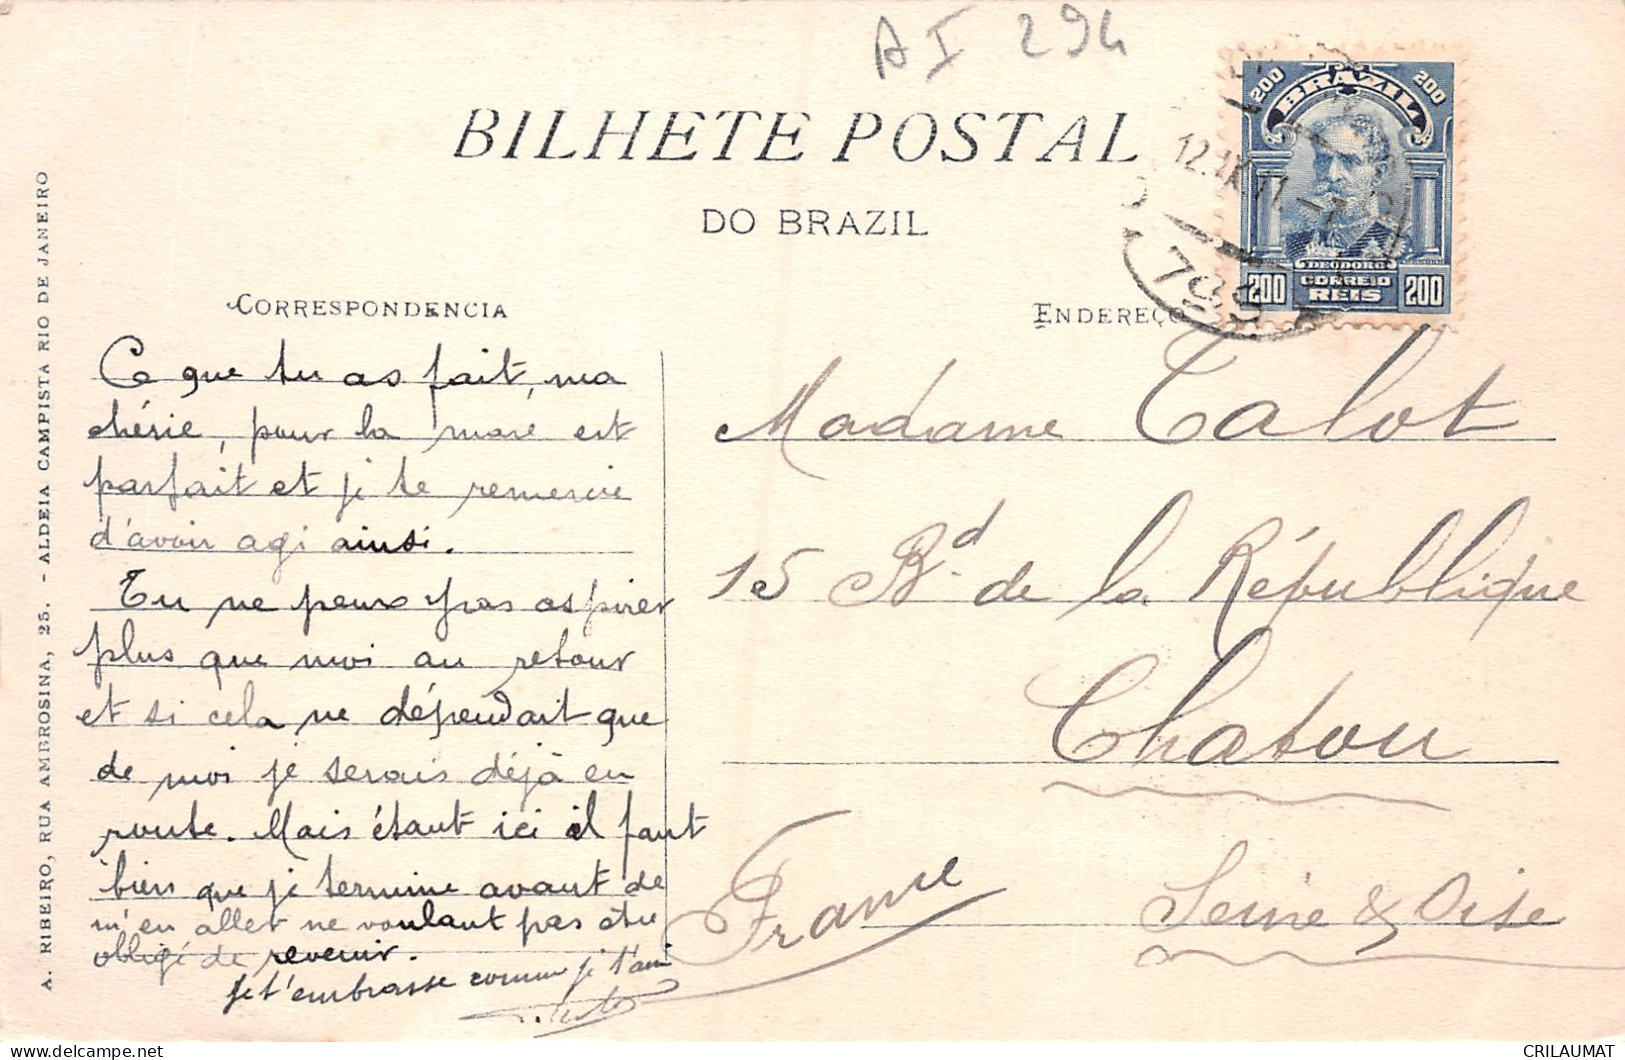 A I 294
BILHETE POSTAL
DO BRAZIL
200 BRAZIL 200
DEODORO
200 CORREIO REIS 200
12.IX.11.-7
CORRESPONDENCIA
ENDEREÇO
Ce que tu as fait, ma
chérie, pour la mare est
parfait et je te remercie
d'avoir agi ainsi.
Tu ne peux pas aspirer
plus que moi au retour
et si cela ne dépendait que
de moi je serais déjà en
route. Mais étant ici il faut
bien que je termine avant de
m'en aller ne voulant pas être
obligé de revenir.
Je t'embrasse comme je t'aime
Madame Talot
15 Bd. de la République
Chatou
Seine & Oise
France
A. RIBEIRO, RUA AMBROSINA, 25. - ALDEIA CAMPISTA RIO DE JANEIRO
CRILAUMAT